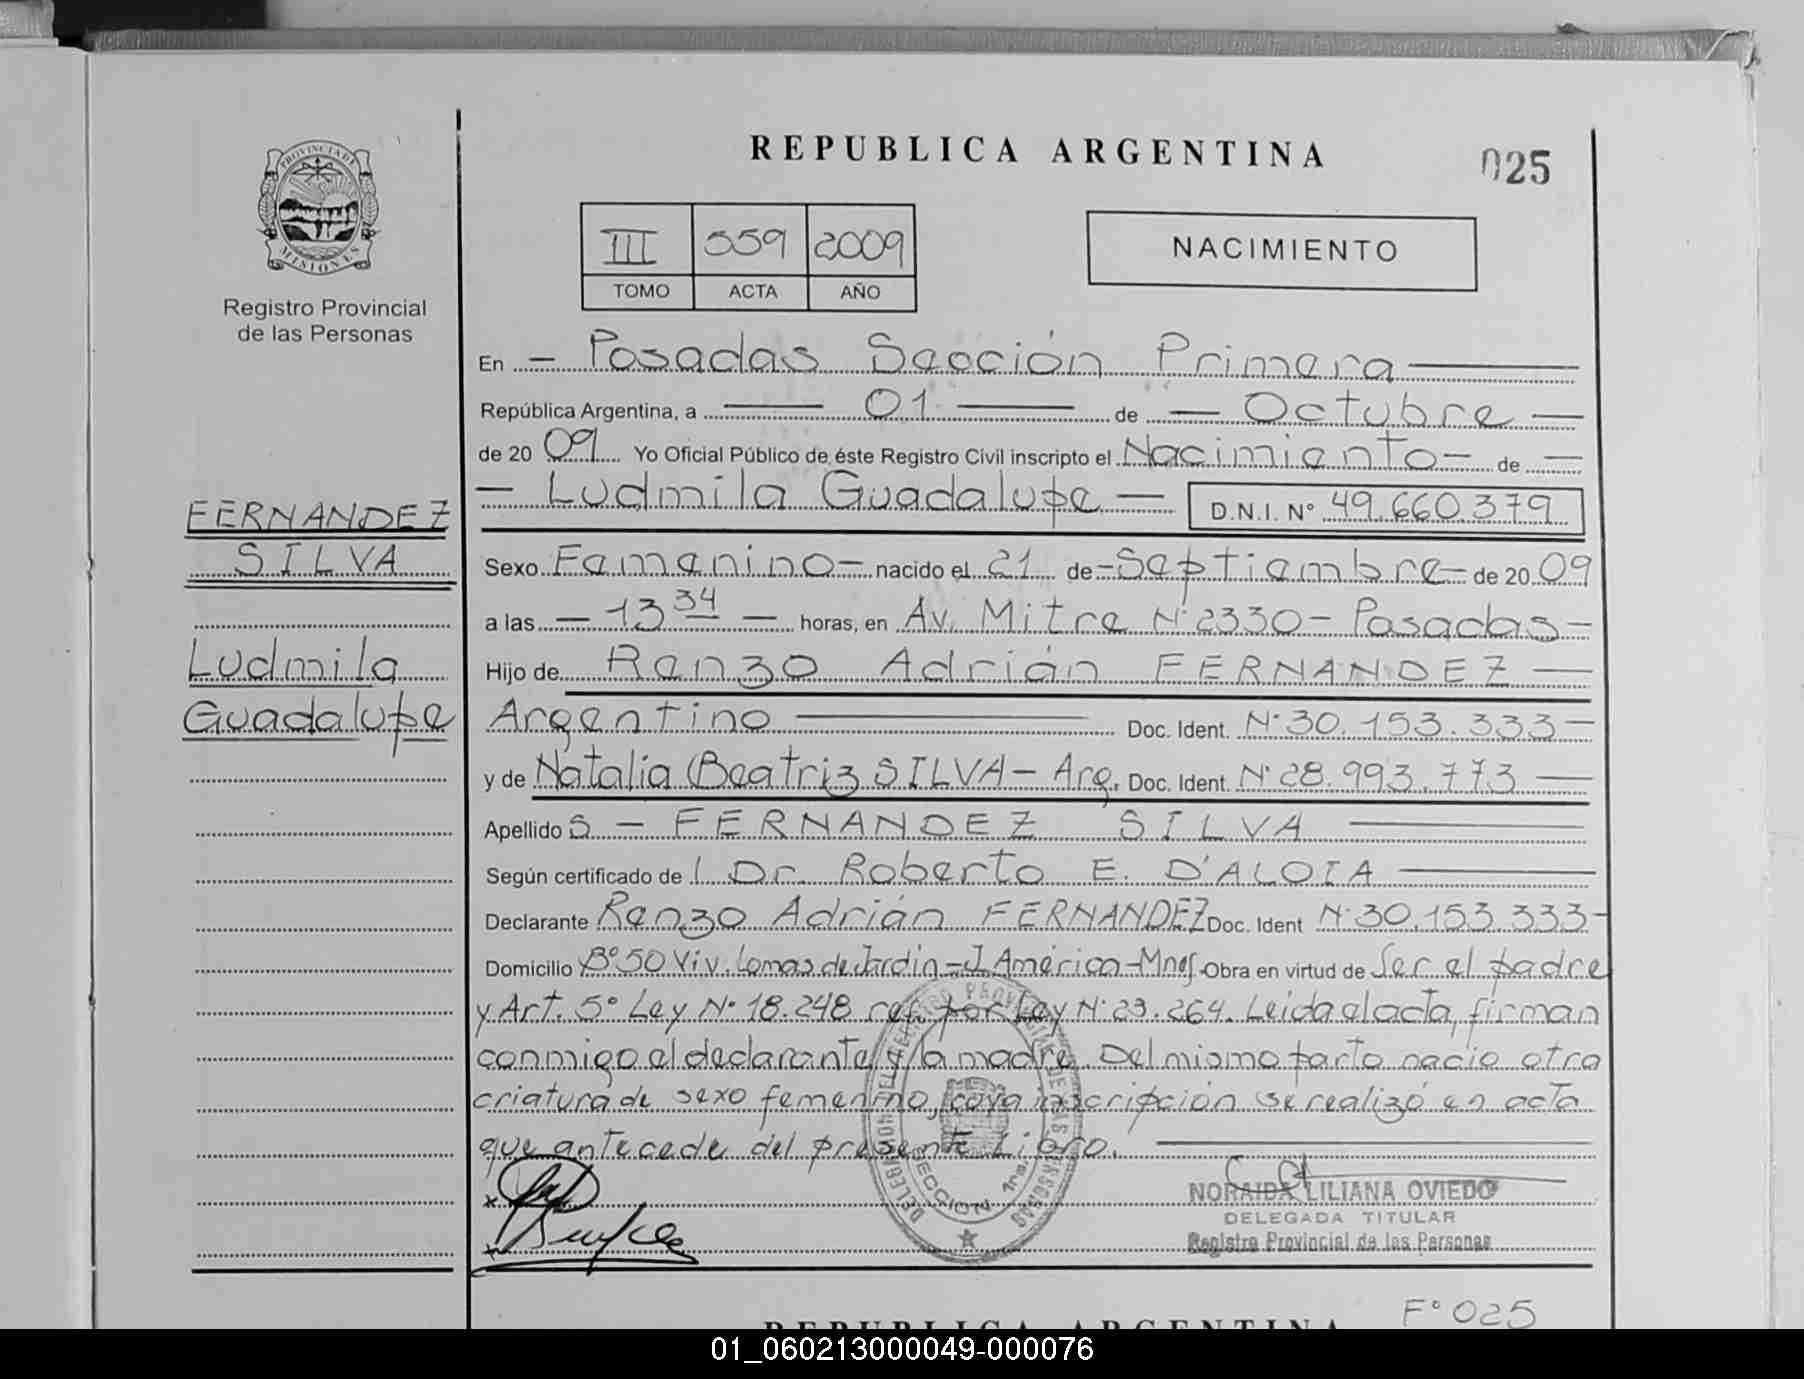 REPUBLICA ARGENTINA
025
PROVINCIA DE MISIONES
Registro Provincial
de las Personas
III 559 2009
TOMO ACTA AÑO
NACIMIENTO
En - Posadas Sección Primera
República Argentina, a 01 de - Octubre -
de 2009 Yo Oficial Público de éste Registro Civil inscripto el Nacimiento - de -
- Ludmila Guadalupe - D.N.I. N° 49.660.379
FERNANDEZ
SILVA
Ludmila
Guadalupe
Sexo Femenino - nacido el 21 de - Septiembre - de 2009
a las - 13 34 - horas, en Av. Mitre N° 2330 - Posadas -
Hijo de Renzo Adrián FERNANDEZ
Argentino Doc. Ident. N° 30.153.333
y de Natalia Beatriz SILVA - Arg. Doc. Ident. N° 28.993.773
Apellido S - FERNANDEZ SILVA
Según certificado de l Dr. Roberto E. D'ALOIA
Declarante Renzo Adrián FERNANDEZ Doc. Ident N° 30.153.333 -
Domicilio B° 50 Viv. Lomas de Jardin - J. América - Mnes. Obra en virtud de Ser el padre
y Art. 5° Ley N° 18.248 ref. por Ley N° 23.264. Leida el acta, firman
conmigo el declarante y la madre. Del mismo parto nacio otra
criatura de sexo femenino, cuya inscripción se realizó en acta
que antecede del presente Libro.
DELEGACION DEL REGISTRO PROVINCIAL DE LAS PERSONAS
SECCION 1ra.
NORAIDA LILIANA OVIEDO
DELEGADA TITULAR
Registro Provincial de las Personas
F° 025
REPUBLICA ARGENTINA
01_060213000049-000076